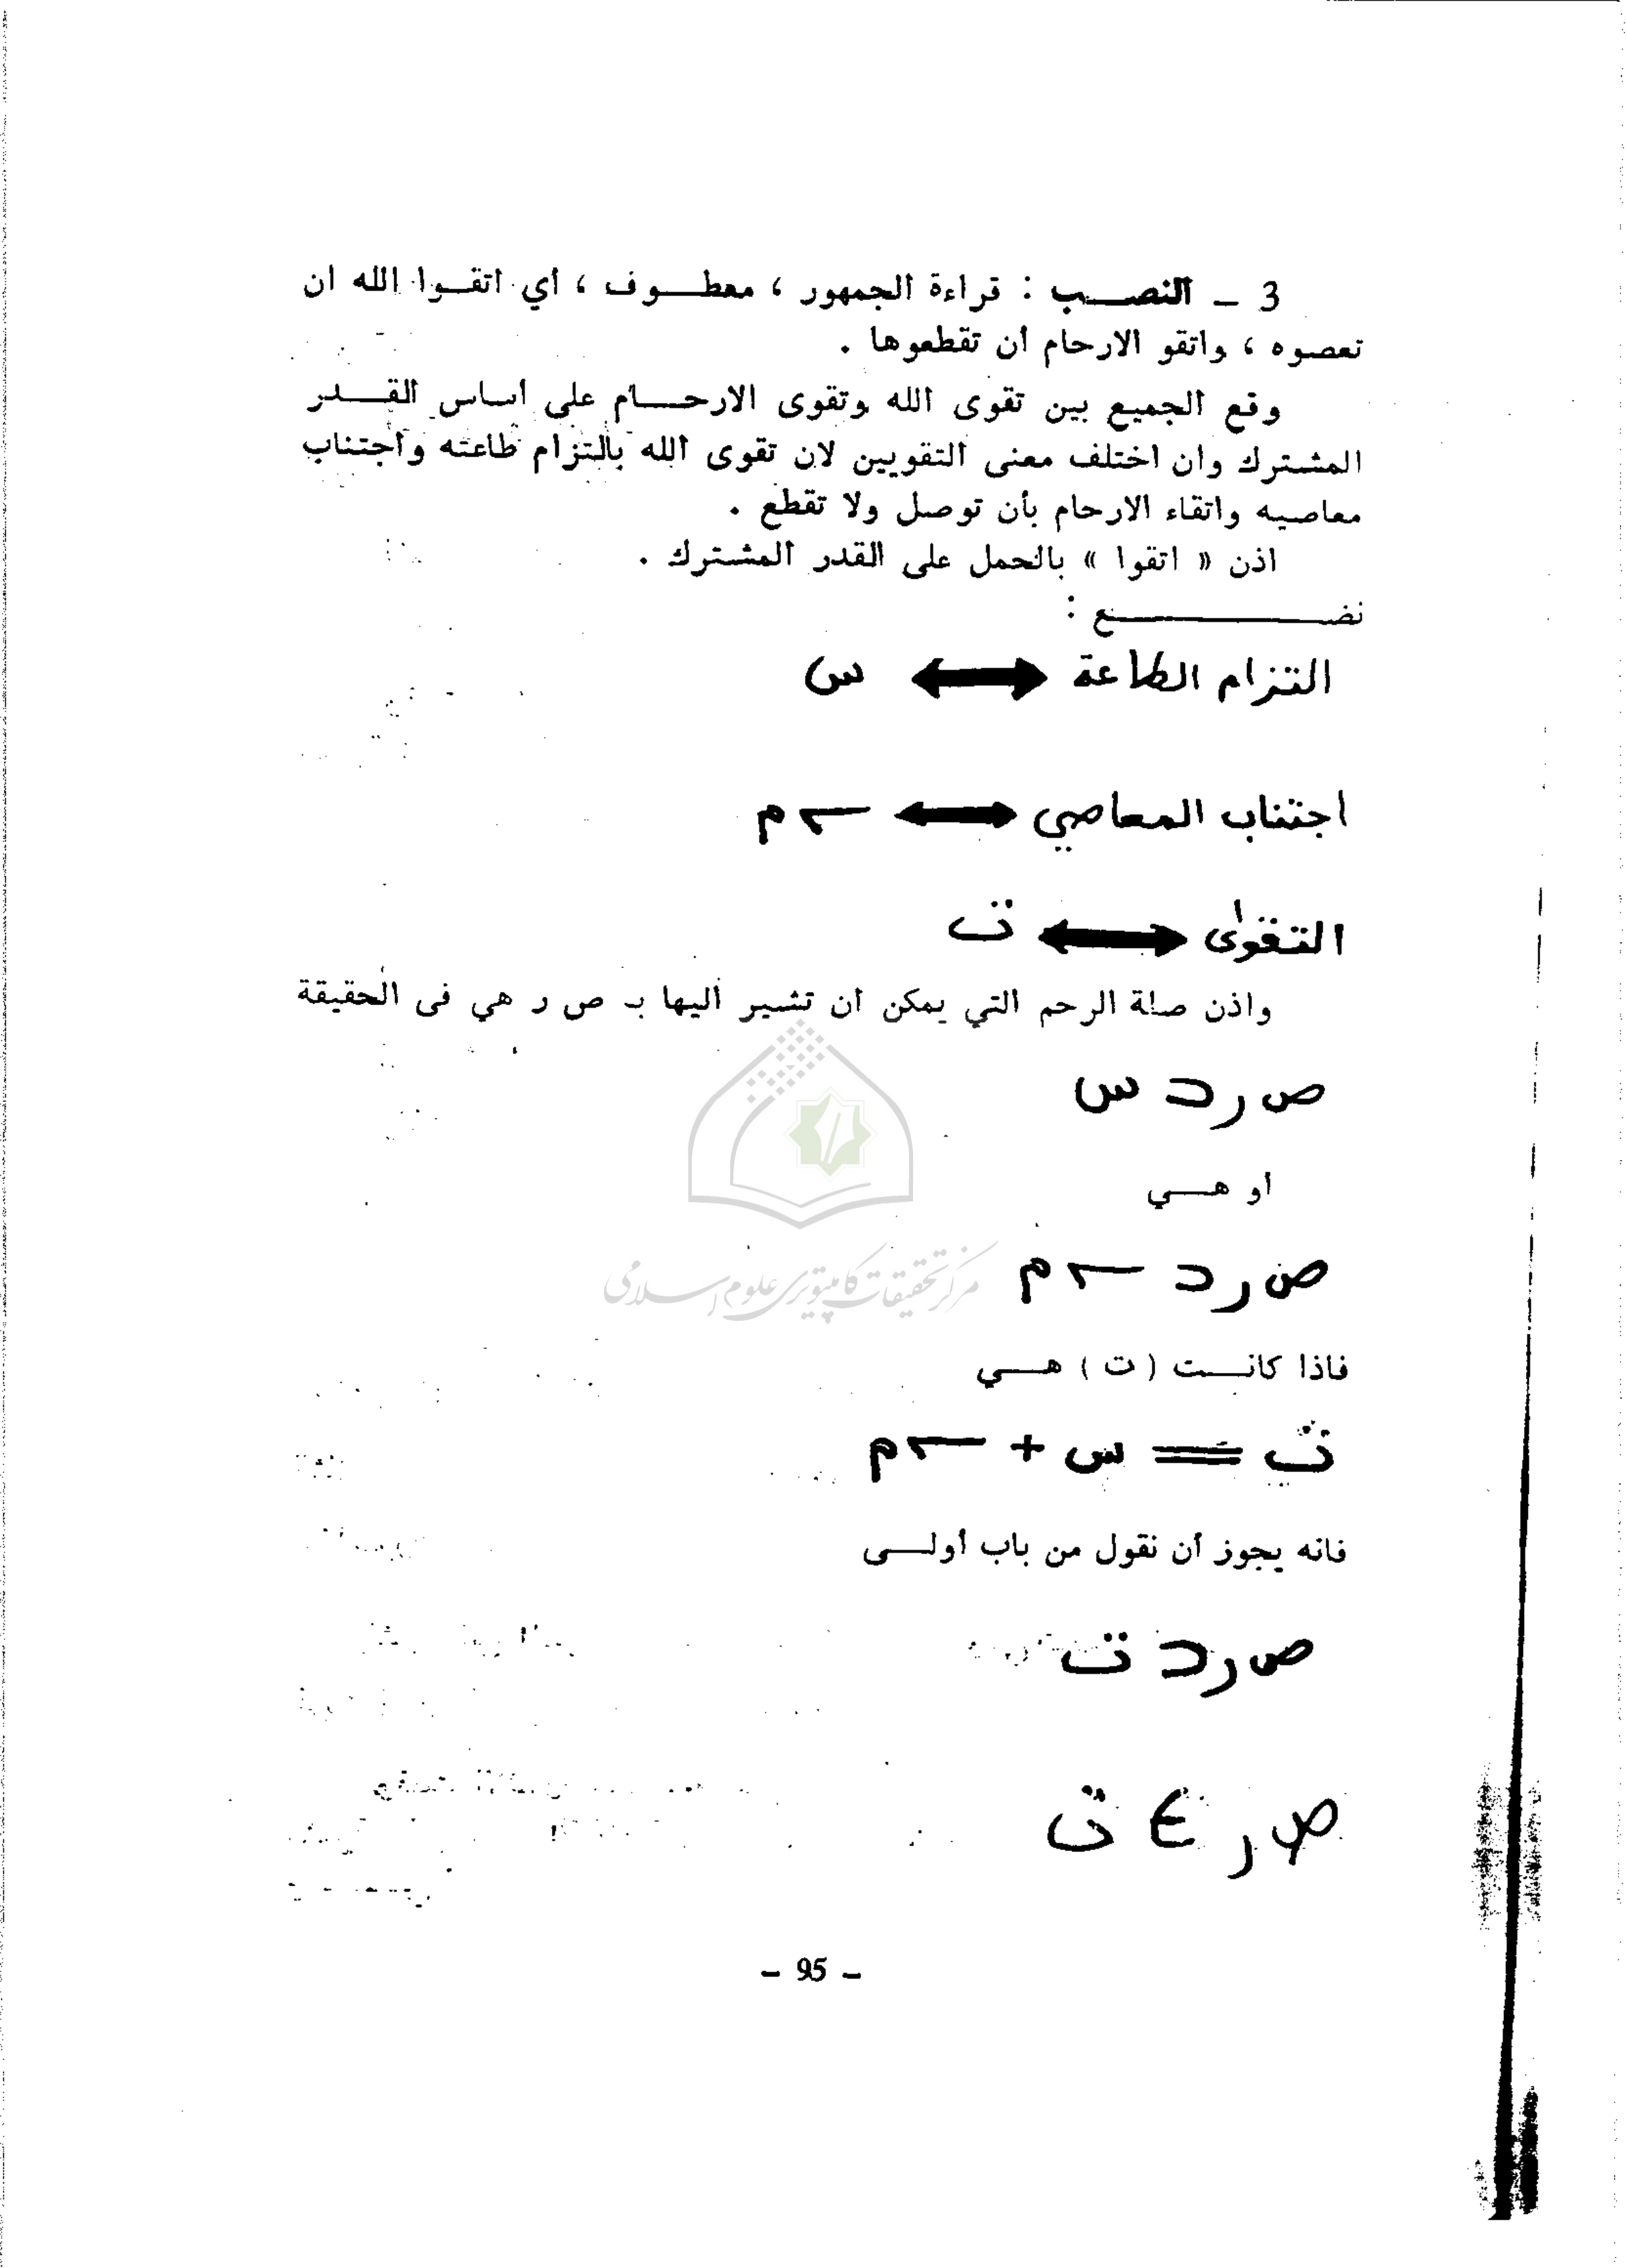 3 – النصب : قراءة الجمهور ، معطوف ، أي اتقوا الله ان
تعصوه ، واتقو الارحام أن تقطعوها .
وقع الجميع بين تقوى الله وتقوى الارحام على أساس القدر
المشترك وان اختلف معنى التقويين لان تقوى الله بالتزام طاعته واجتناب
معاصيه واتقاء الارحام بأن توصل ولا تقطع .
اذن « اتقوا » بالحمل على القدر المشترك .
نضع :
التزام الطاعة ⟷ س
اجتناب المعاصي ⟷ ⌐ م
التقوى ⟷ ت
واذن صلة الرحم التي يمكن ان تشير اليها بـ ص ر هي فى الحقيقة
ص ر ⊃ س
او هي
مركز تحقيقات كامپيوترى علوم اسلامى
ص ر ⊃ ⌐ م
فاذا كانت ( ت ) هي
ت = س + ⌐ م
فانه يجوز أن نقول من باب أولى
ص ر ⊃ ت
ص ر ∈ ت
– 95 –